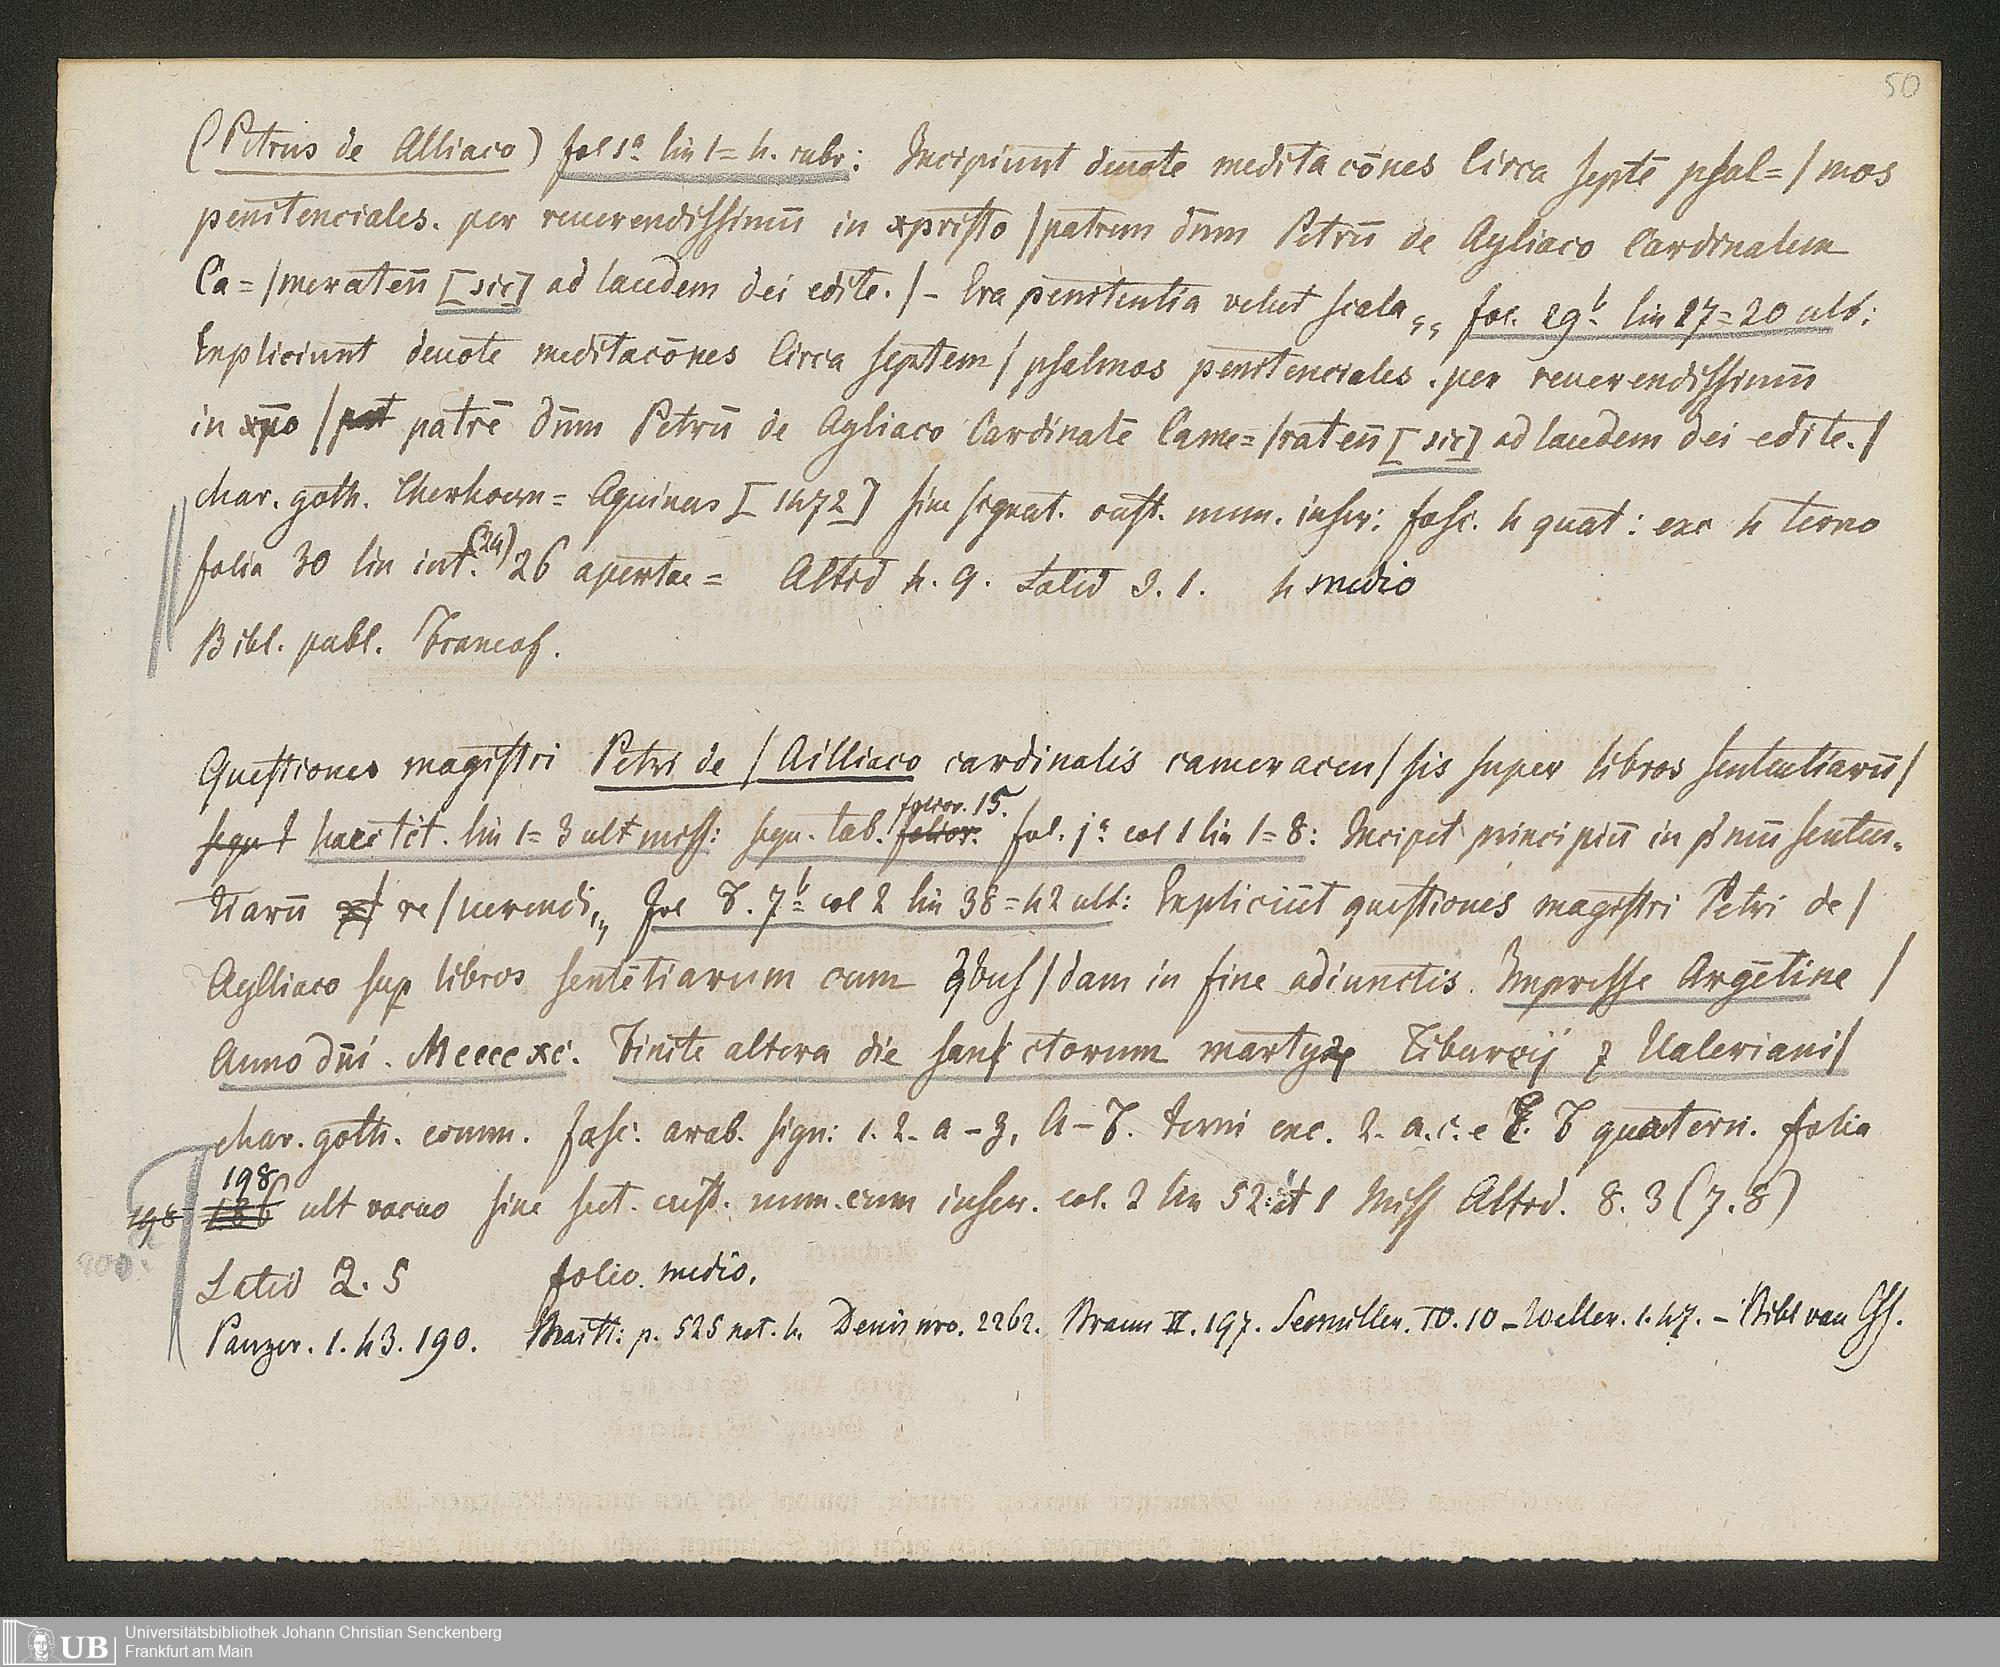 50
(Petrus de Alliaco) fol 1a lin 1=4. rubr: Incipiunt deuote medita cōnes Circa septē psal=/mos
penitenciales. per reuerendissimū in xpristo /patrem dn̄m Petrū de Agliaco Cardinalem
Ca=/meratēn [sic] ad laudem dei edite./- Era penitentia velut scala,, fol. 29b lin 17=20 ult:
Expliciunt deuote meditacōnes Circa septem/ psalmos penitenciales. per reuerendissimū
in xp̄o / patrē dn̄m Petrū de Agliaco Cardinatē Came=/ratēn [sic] ad laudem dei edite./
char. goth. Therhoern= Aquinas [1472] sine signat. cust. num. inscr: fasc. 4 quat: exc 4 terno
folia 30 lin int. (24) 26 apertae= Altid 4. 9. Latid 3. 1. 4 medio
Bibl. publ. Francof.
Questiones magistri Petri de / Ailliaco cardinalis cameracen/sis super libros sententiarū/
haec tit. lin 1=3 alt miss: sequ. tab. folior. 15. fol. ja col 1 lin 1=8: Incipit principiū in p'mū senten-
tiarū re/uerendi,, fol F. 7b col 2 lin 38=42 ult: Expliciūt questiones magistri Petri de/
Aylliaco sup libros sentētiarum cum qbus/dam in fine adiunctis. Impresse Argētine /
Anno dn̄i. Mcccc xc. Finite altera die san/ctorum martyꝝ Tiburcij ⁊ Ualeriani/
char. goth. comm. fasc. arab. sign: 1. 2. a-z, A-F. terni exc. 2. a. c. e E. F quatern. folia
198 ult vacuo sine cust. num. cum inscr. col. 2 lin 52 et 1 Miss Altid. 8. 3 (7. 8)
Latid 2. 5 folio. medio.
Panzer. 1. 43. 190. Maitt: p. 525 not. 4. Denis nro. 2262. Braun II. 197. Seemiller. IV. 10 - Weller. 1. 47. - Bibl van Ess.
UB Universitätsbibliothek Johann Christian Senckenberg
Frankfurt am Main